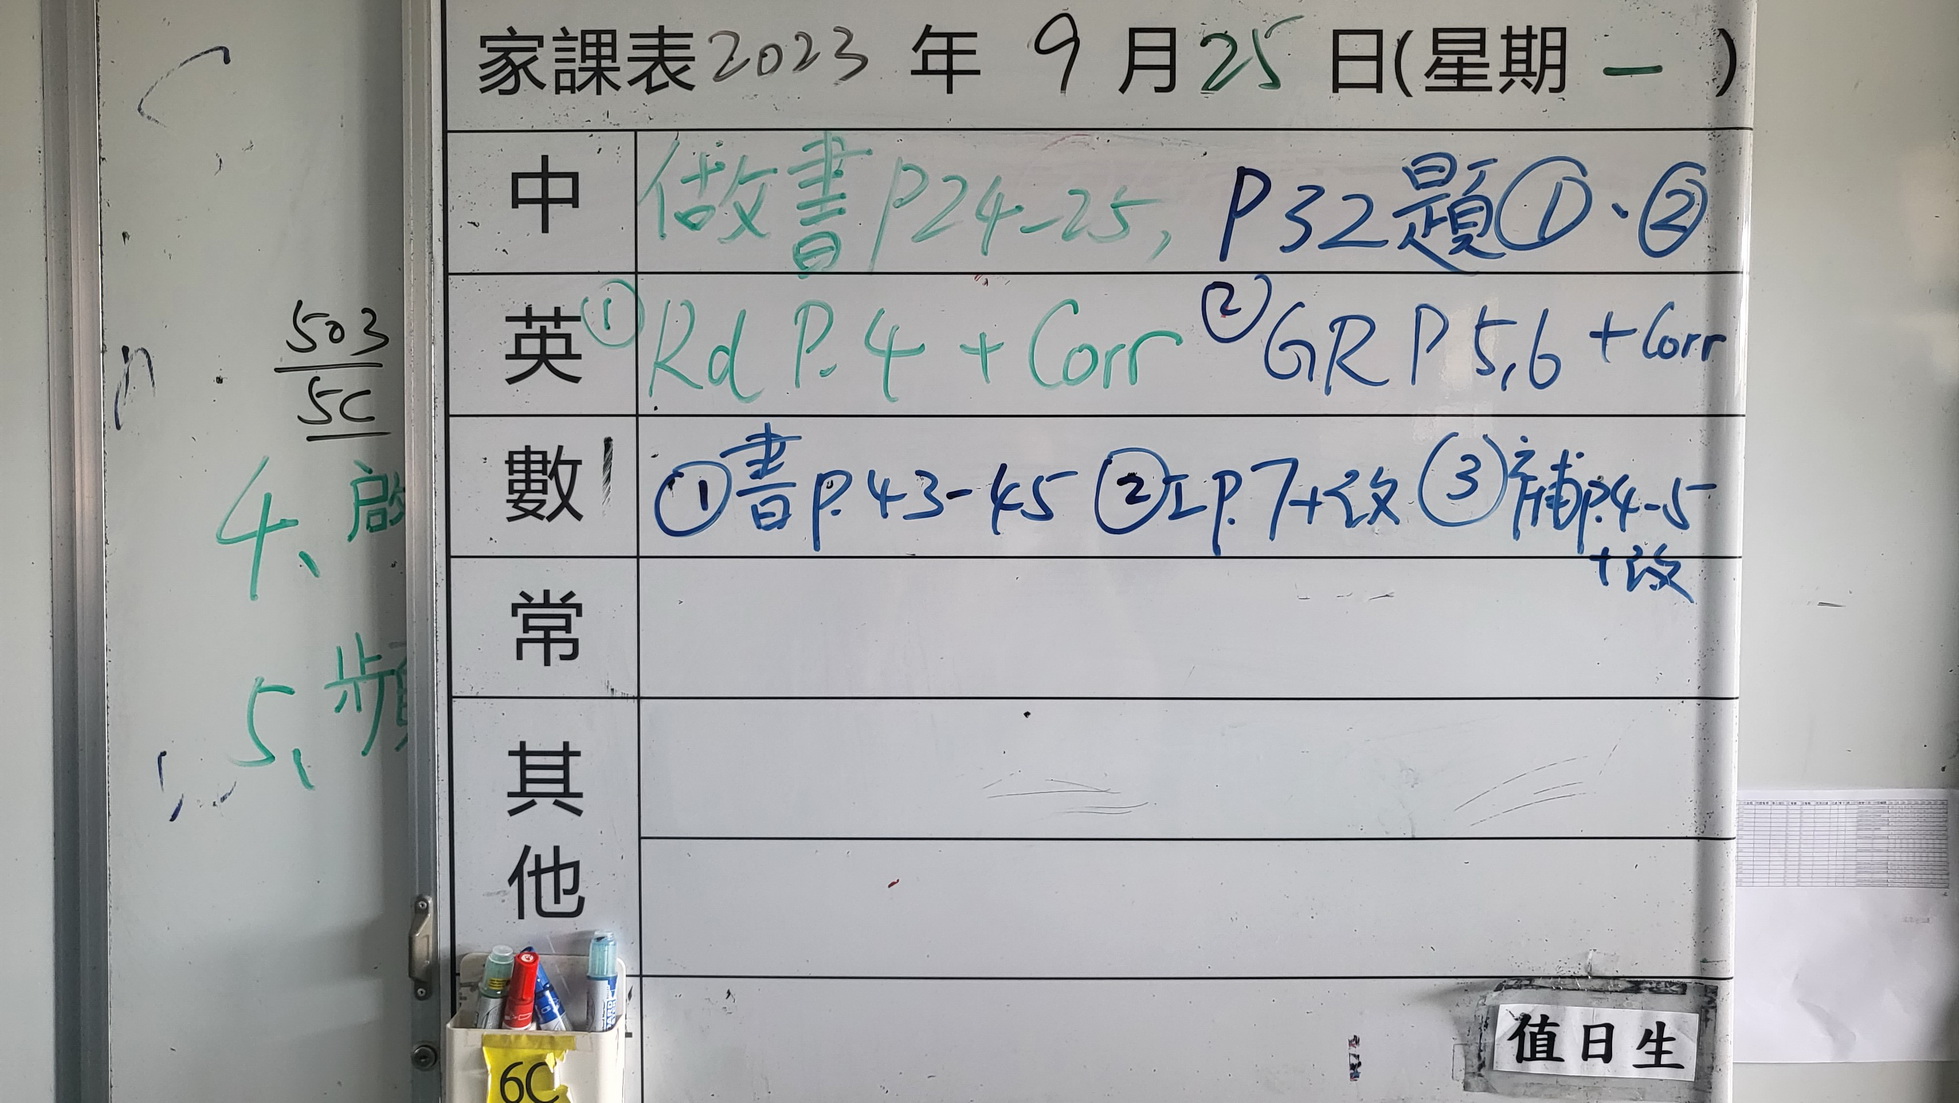 家課表2023年9月25日(星期一)
中 做書P24-25, P32題①、②
英 ①Rd P.4 + Corr ②GR P 5,6 + Corr
數 ①書P.43-45 ②工P.7+改 ③補P.4-5
+改
常
其他
值日生
6C
503
5C
4、啟
5、